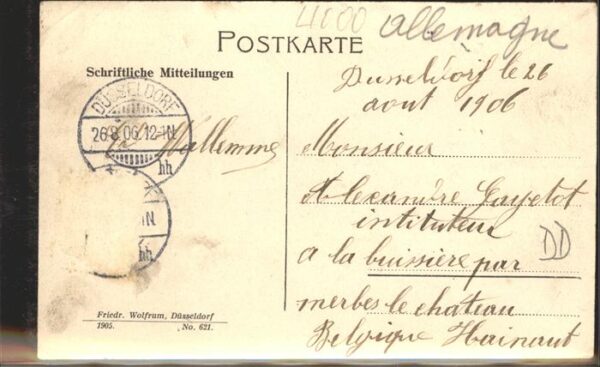 4000 allemagne
POSTKARTE
Schriftliche Mitteilungen
DÜSSELDORF
26.8.06.12-1N
hh
1N
hh
Friedr. Wolfrum, Düsseldorf
1905. No. 621.
Dusseldorf le 26
aout 1906
Monsieur
Alexandre Gayetot
instituteur
a la buissière par
merbes le chateau
Belgique Hainaut
DD